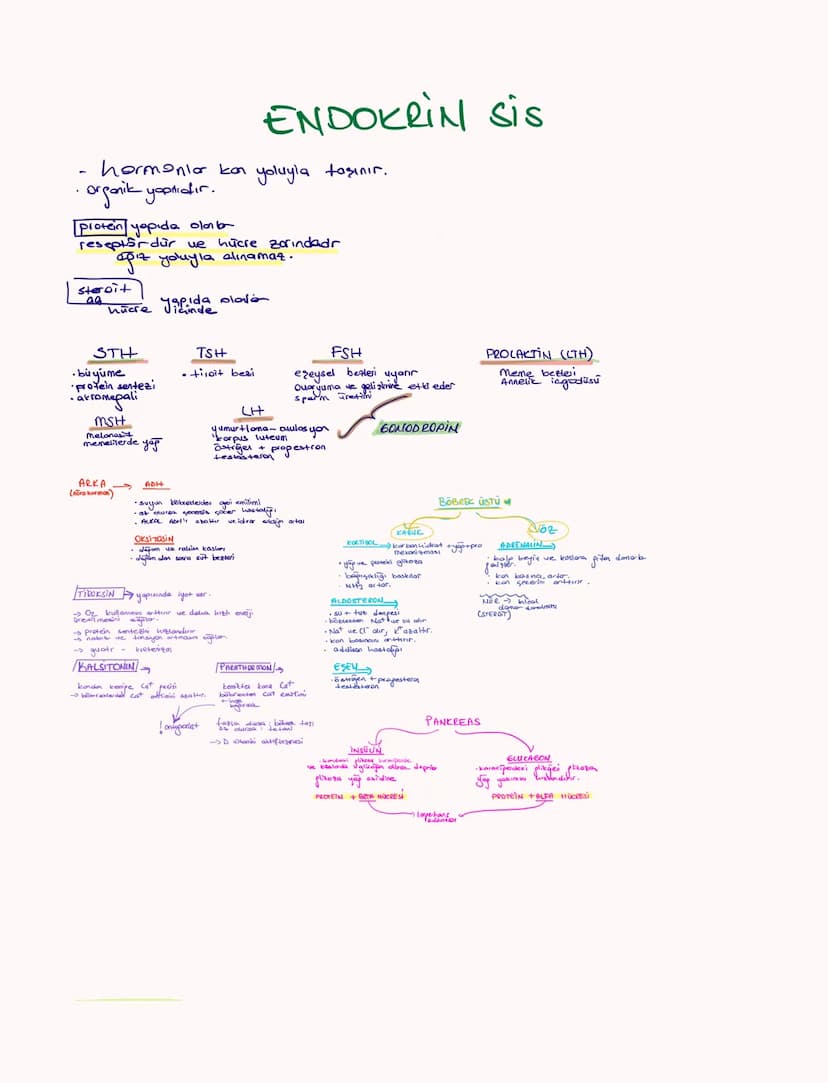 ENDOKRİN SİS
- hormonlar kan yoluyla taşınır.
· organik yapılıdır.
protein yapıda olanlar
reseptördür ve hücre zarındadır
ağız yoluyla alınamaz.
steroit
yağ yapıda olanlar
hücre içinde
STH
· büyüme
· protein sentezi
· akromegali
TSH
· tiroit bezi
FSH
eşeysel bezleri uyarır
ovaryuma ve gelişimine etki eder
sperm üretimi
PROLAKTİN (LTH)
Meme bezleri
Annelik içgüdüsü
MSH
melanosit
yap
LH
yumurtlama - ovulasyon
korpus luteum
östrojen + progesteron
testosteron
GONODROPİN
ARKA → ADH
· suyun böbreklerden geri emilimi
hastalığı
· Alkol ADH'ı azaltır ve idrar artar
OKSİTOSİN
· doğum ve rahim kasları
· doğumdan sonra süt bezleri
TİROKSİN → yapısında iyot var.
→ O2 kullanımını arttırır ve daha hızlı enerji
üretilmesini sağlar.
→ protein sentezini hızlandırır
→ nabız ve tansiyon artmasını sağlar.
→ guatr -
KALSİTONİN →
kandan kemiğe Ca+ geçişi
→ böbreklerden Ca+ emilimi azaltır.
PARATHORMON →
kemikten kana Ca+
böbrekten Ca+ emilimi
! antagonist
fazla olursa : böbrek taşı
az olursa : tetani
→ D vitamini aktifleşmesi
BÖBREK ÜSTÜ
KABUK
ÖZ
KORTİZOL → karbonhidrat + yağ + pro
mekanizması
· yağ ve protein glikoza
· bağışıklığı baskılar
· NH3 artar.
ALDOSTERON →
· su + tuz dengesi
· böbrekten Na+ ve su alır
· Na+ ve Cl- alır, K+ azaltır.
· kan basıncını arttırır.
· addison hastalığı
EŞEY →
· östrojen + progesteron
testosteron
ADRENALİN →
· kalp beyin ve kaslara giden damarlar
genişler.
· kan basıncı artar.
· kan şekerini arttırır.
NER →
damar
PANKREAS
İNSÜLİN
· kandaki glikozu karaciğerde
ve kaslarda glikojen olarak depolar
glikozu yağ asidine
PROTEİN + BETA HÜCRESİ
GLUKAGON
· karaciğerdeki glikojeni glikoza
yağ yıkımını hızlandırır.
PROTEİN + ALFA HÜCRESİ
langerhans
adacıkları